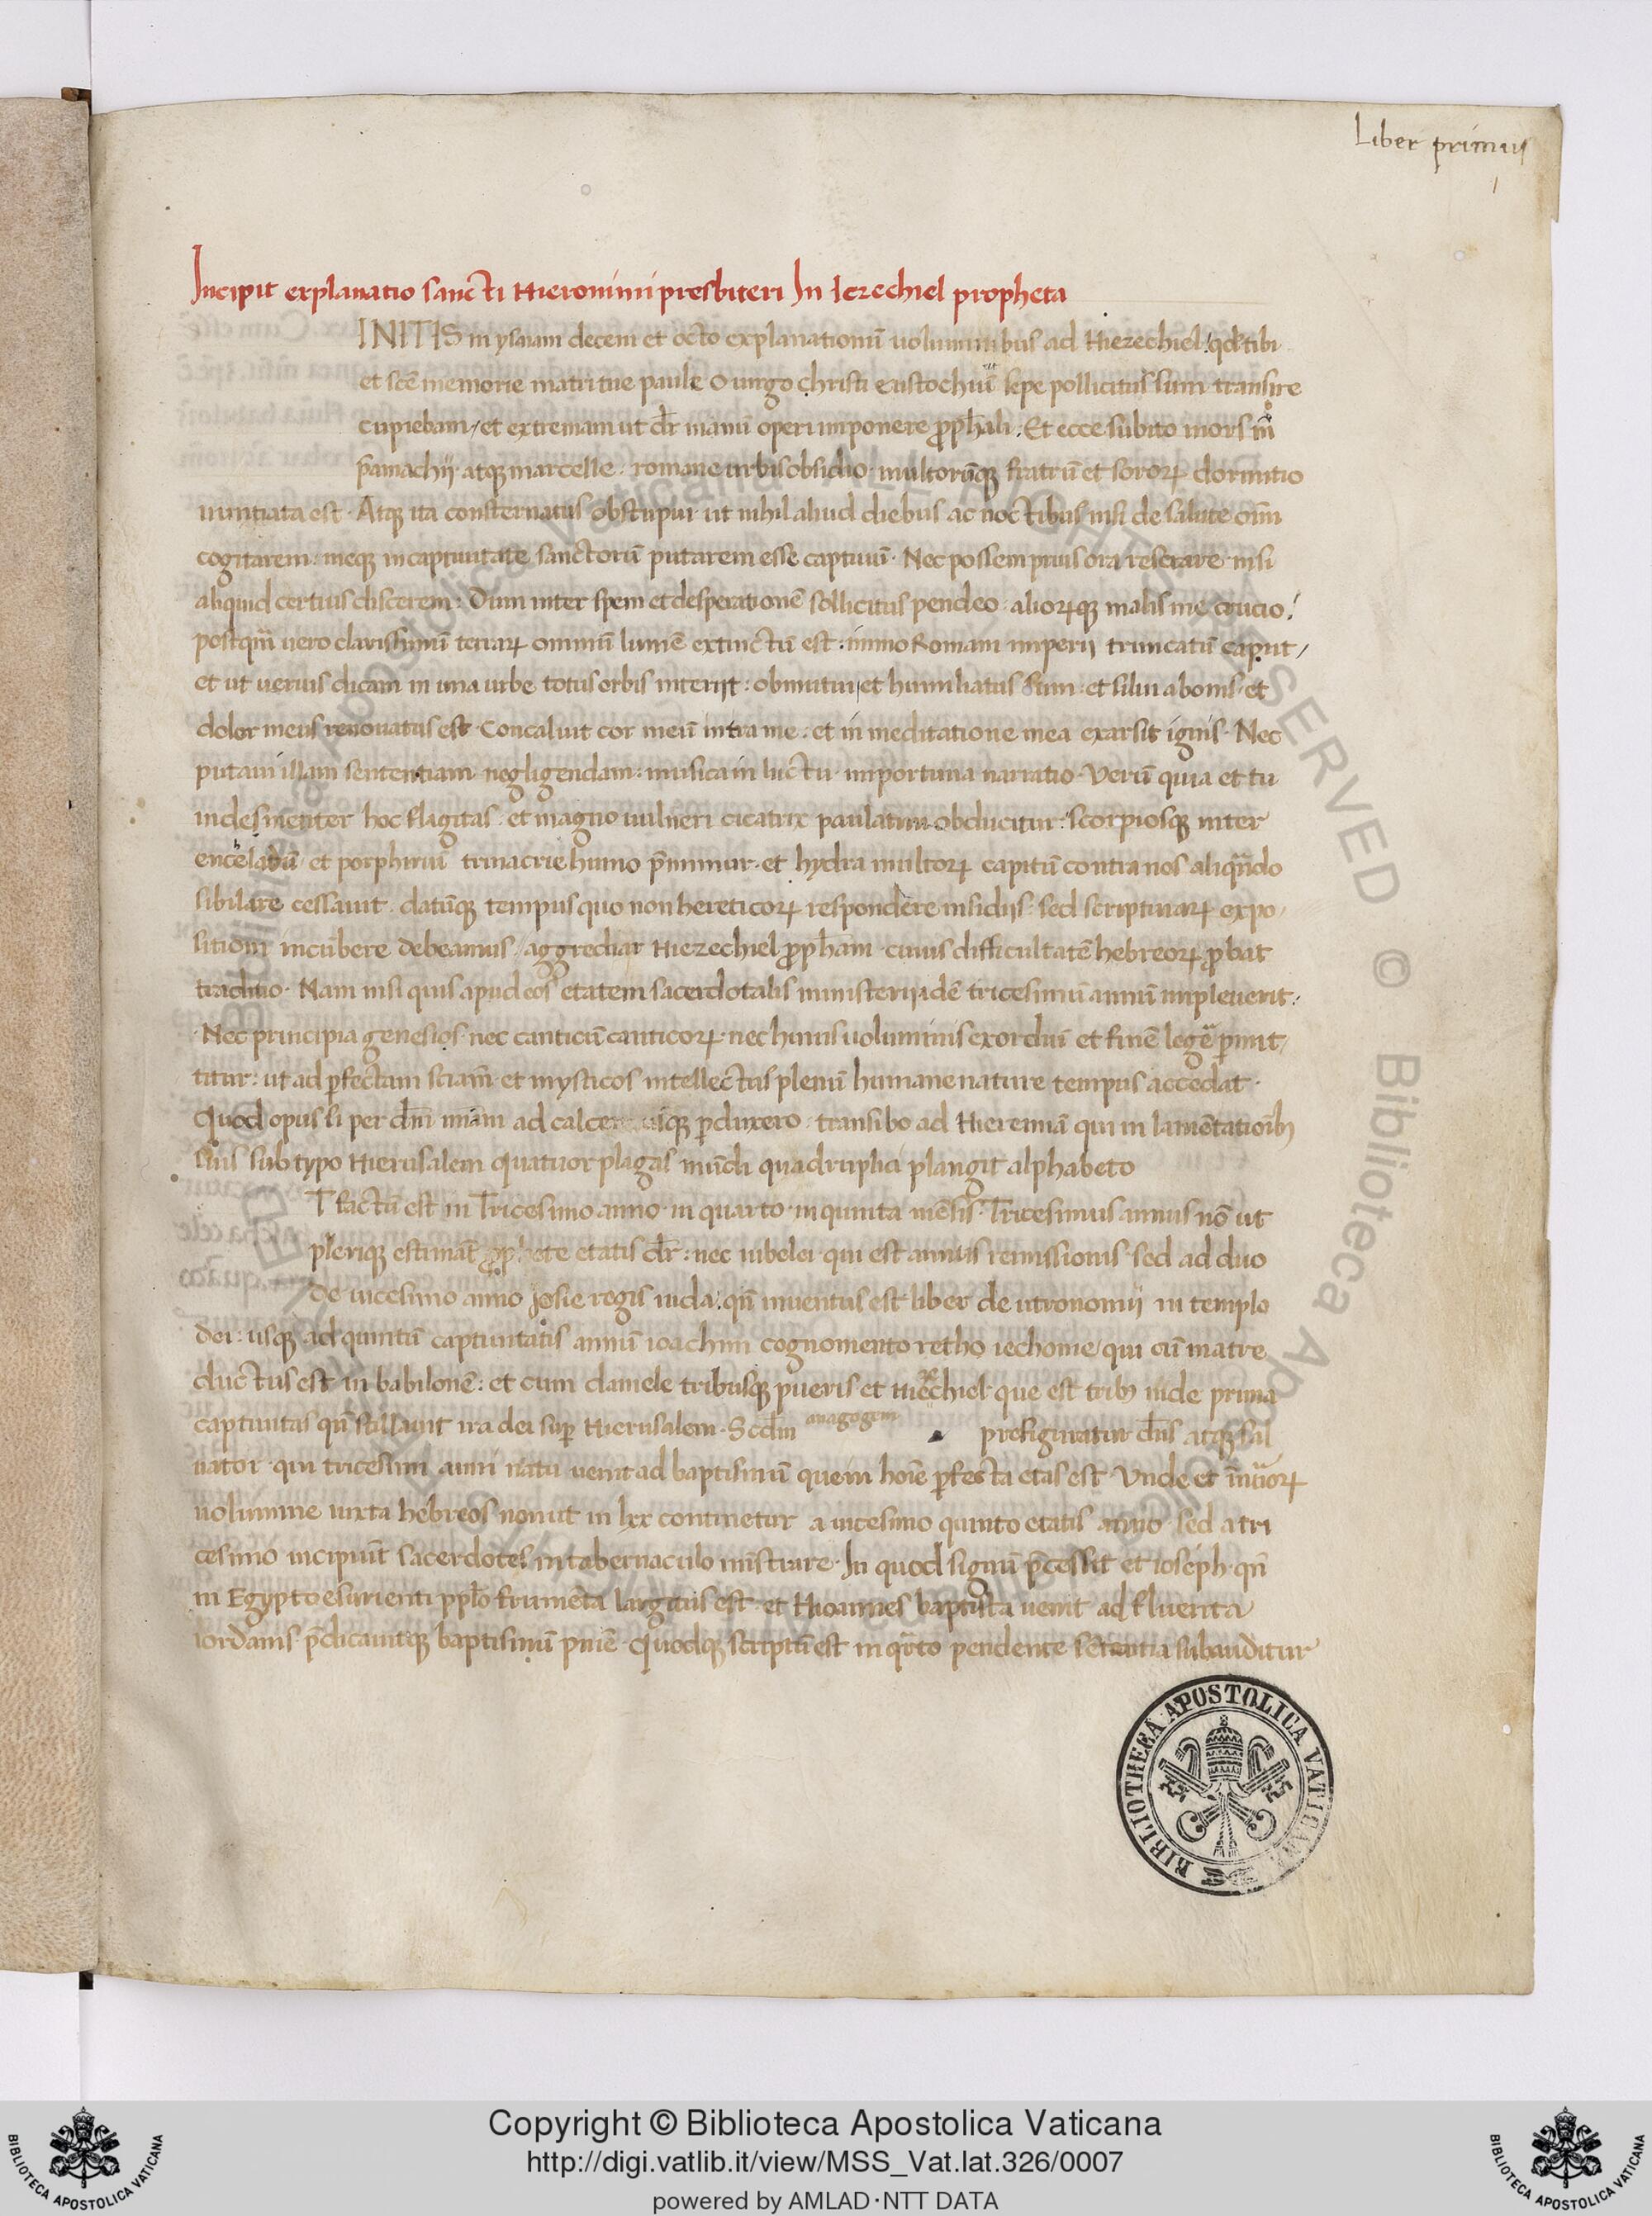 Liber primus
1
Incipit explanatio sancti Hieronimi presbiteri In Iezechiel propheta
INITIS in ysaiam decem et octo explanationū uoluminibus ad Hiezechiel qđ tibi
et scē memorie matri tue paule o uirgo christi eustochiū sepe pollicitus sum transire
cupiebam et extremam ut dr̄ manū operi imponere ꝓph̄ali. Et ecce subito mors m̄
pamachij atqꝫ marcelle romane urbis obsidio multorūqꝫ fratrū et sororꝝ dormitio
nuntiata est. Atqꝫ ita consternatus obstupui ut nihil aliud diebus ac noctibus nisi de salute oīm
cogitarem: meqꝫ in captiuitate sanctorū putarem esse captiuū. Nec possem prius ora reserare nisi
aliquid certius discerem: Dum inter spem et desperationē sollicitus pendeo aliorꝝqꝫ malis me crucio!
postqm̄ uero clarissimū terrarꝝ omniū lumē extinctū est: immo Romani imperij truncatū caput
et ut uerius dicam in una urbe totus orbis interijt: obmutui et humiliatus sum: et silui a bonis et
dolor meus renouatus est. Concaluit cor meū intra me: et in meditatione mea exarsit ignis. Nec
putaui illam sententiam negligendam: musica in luctu importuna narratio. Verū quia et tu
indesinenter hoc flagitas: et magno uulneri cicatrix paulatim obducitur: scorpiosqꝫ inter
enceladū et porphiriū trinacrie humo p̄mimur et hydra multorꝝ capitū contra nos aliqn̄do
sibilare cessauit datūqꝫ tempus quo non hereticorꝝ respondere insidijs sed scripturarꝝ expo
sitioni incūbere debeamus aggrediar Hiezechiel ꝓph̄am cuius difficultatē hebreorꝝ ꝓbat
traditio. Nam nisi quis apud eos etatem sacerdotalis ministerij idē tricesimū annū impleuerit.
Nec principia genesios nec canticū canticorꝝ nec huius uoluminis exordiū et finē legē ꝑmit
titur: ut ad ꝑfectam sciam̄ et mysticos intellectus plenū humane nature tempus accedat.
Quod opus si per dn̄i miam̄ ad calcem usqꝫ ꝑduxero transibo ad Hieremiā qui in lamētatioībꝫ
suis sub typo Hierusalem quatuor plagas mūdi quadruplici plangit alphabeto
T factū est in Tricesimo anno in quarto in quinta mēsis. Tricesimus annus nō ut
pleriqꝫ estimāt ꝓphete etatis dr̄: nec iubelei qui est annus remissionis sed ad duo
de uicesimo anno Josie regis iuda: qn̄ inuentus est liber deutronomij in templo
dei: usqꝫ ad quintū captiuitatis annū ioachim cognomento retho iechonie qui cū matre
ductus est in babilonē: et cum daniele tribusqꝫ pueris et hiezechiel que est tribꝫ iude prima
captiuitas qn̄ stillauit ira dei suꝑ Hierusalem. Scdm̄ anagogem prefiguratur dn̄s atqꝫ sal
uator qui tricesimi anni natu uenit ad baptismū quem hoīe ꝑfecta etas est Vnde et ī nūorꝝ
uolumine iuxta hebreos non ut in lxx continetur a uicesimo quinto etatis anno sed a tri
cesimo incipiūt sacerdotes in tabernaculo mīstrare. In quod signū p̄cessit et ioseph qn̄
in Egypto esurienti pplo frumēta largitus est et Hioannes baptista uenit ad fluenta
iordanis p̄dicauitqꝫ baptismū pniē. Quodqꝫ scriptū est in qr̄to pendente sētentia subauditur
BIBLIOTHECA APOSTOLICA VATICANA
Copyright © Biblioteca Apostolica Vaticana
http://digi.vatlib.it/view/MSS_Vat.lat.326/0007
powered by AMLAD·NTT DATA
BIBLIOTECA APOSTOLICA VATICANA
BIBLIOTECA APOSTOLICA VATICANA